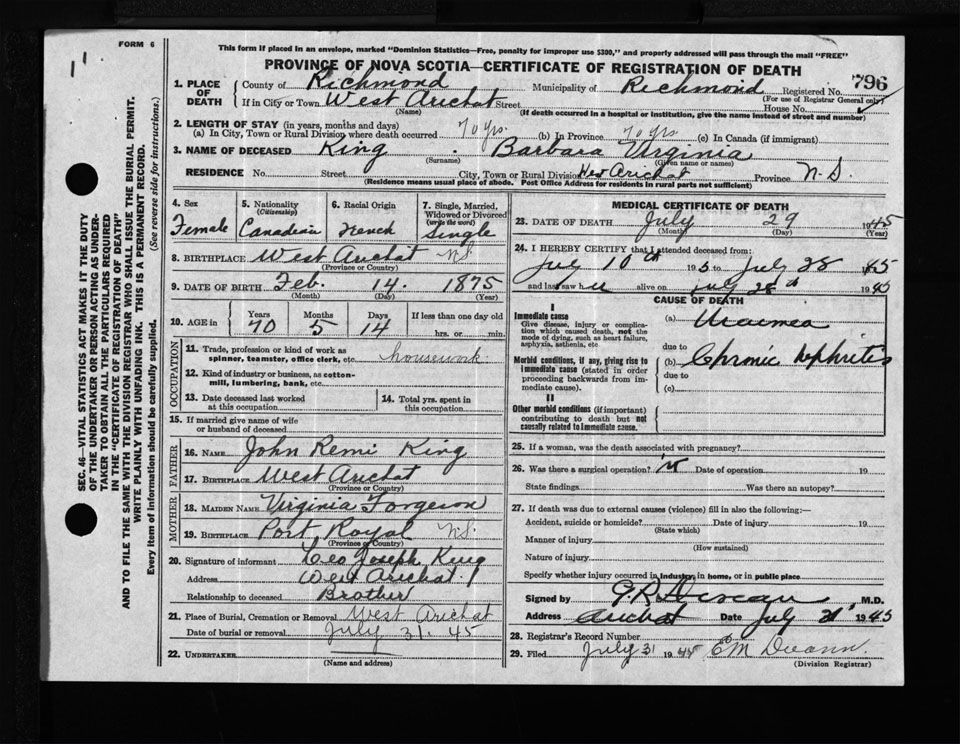 FORM 6
This form if placed in an envelope, marked "Dominion Statistics—Free, penalty for improper use $300," and properly addressed will pass through the mail "FREE"
PROVINCE OF NOVA SCOTIA—CERTIFICATE OF REGISTRATION OF DEATH
796
1. PLACE OF DEATH County of Richmond Municipality of Richmond Registered No.
(For use of Registrar General only)
If in City or Town West Arichat Street House No.
(Name) (If death occurred in a hospital or institution, give the name instead of street and number)
2. LENGTH OF STAY (in years, months and days)
(a) In City, Town or Rural Division where death occurred 70 yrs. (b) In Province 70 yrs (c) In Canada (if immigrant)
3. NAME OF DECEASED King Barbara Virginia
(Surname) (Given name or names)
RESIDENCE No. Street City, Town or Rural Division West Arichat Province N.S.
(Residence means usual place of abode. Post Office Address for residents in rural parts not sufficient)
4. Sex Female
5. Nationality (Citizenship) Canadian
6. Racial Origin French
7. Single, Married, Widowed or Divorced (write the word) Single
8. BIRTHPLACE West Arichat N.S.
(Province or Country)
9. DATE OF BIRTH Feb. 14. 1875
(Month) (Day) (Year)
10. AGE in Years Months Days If less than one day old
70 5 14 hrs. or min.
OCCUPATION
11. Trade, profession or kind of work as spinner, teamster, office clerk, etc. housework.
12. Kind of industry or business, as cotton-mill, lumbering, bank, etc.
13. Date deceased last worked at this occupation
14. Total yrs. spent in this occupation
15. If married give name of wife or husband of deceased
FATHER
16. NAME John Remi King
17. BIRTHPLACE West Arichat
(Province or Country)
MOTHER
18. MAIDEN NAME Virginia Forgeron
19. BIRTHPLACE Port Royal N.S.
(Province or Country)
20. Signature of informant Leo Joseph King
Address West Arichat
Relationship to deceased Brother
21. Place of Burial, Cremation or Removal West Arichat
Date of burial or removal July 31. 45
22. UNDERTAKER
(Name and address)
MEDICAL CERTIFICATE OF DEATH
23. DATE OF DEATH July 29 1945
(Month) (Day) (Year)
24. I HEREBY CERTIFY that I attended deceased from:
July 10th 195 to July 28 1945
and last saw her alive on July 28th 1945
CAUSE OF DEATH
I
Immediate cause
Give disease, injury or complication which caused death, not the mode of dying, such as heart failure, asphyxia, asthenia, etc.
(a) Uraemea
due to
Morbid conditions, if any, giving rise to immediate cause (stated in order proceeding backwards from immediate cause).
(b) Chronic Nephrites
due to
(c)
II
Other morbid conditions (if important) contributing to death but not causally related to immediate cause.
25. If a woman, was the death associated with pregnancy?
26. Was there a surgical operation? Date of operation 19
State findings Was there an autopsy?
27. If death was due to external causes (violence) fill in also the following:
Accident, suicide or homicide? Date of injury 19
(State which)
Manner of injury
(How sustained)
Nature of injury
Specify whether injury occurred in industry, in home, or in public place
Signed by M.D.
Address Arichat Date July 31 1945
28. Registrar's Record Number
29. Filed July 31 1945
(Division Registrar)
SEC. 46—VITAL STATISTICS ACT MAKES IT THE DUTY
OF THE UNDERTAKER OR PERSON ACTING AS UNDER-
TAKER TO OBTAIN ALL THE PARTICULARS REQUIRED
IN THE "CERTIFICATE OF REGISTRATION OF DEATH"
AND TO FILE THE SAME WITH THE DIVISION REGISTRAR WHO SHALL ISSUE THE BURIAL PERMIT.
WRITE PLAINLY WITH UNFADING INK. THIS IS A PERMANENT RECORD.
Every item of information should be carefully supplied. (See reverse side for instructions.)